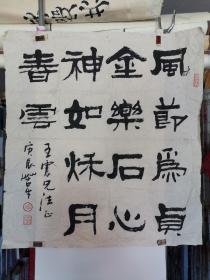 風節爲貞
金樂石心
神如秋月
春雲
兄法正
庚辰